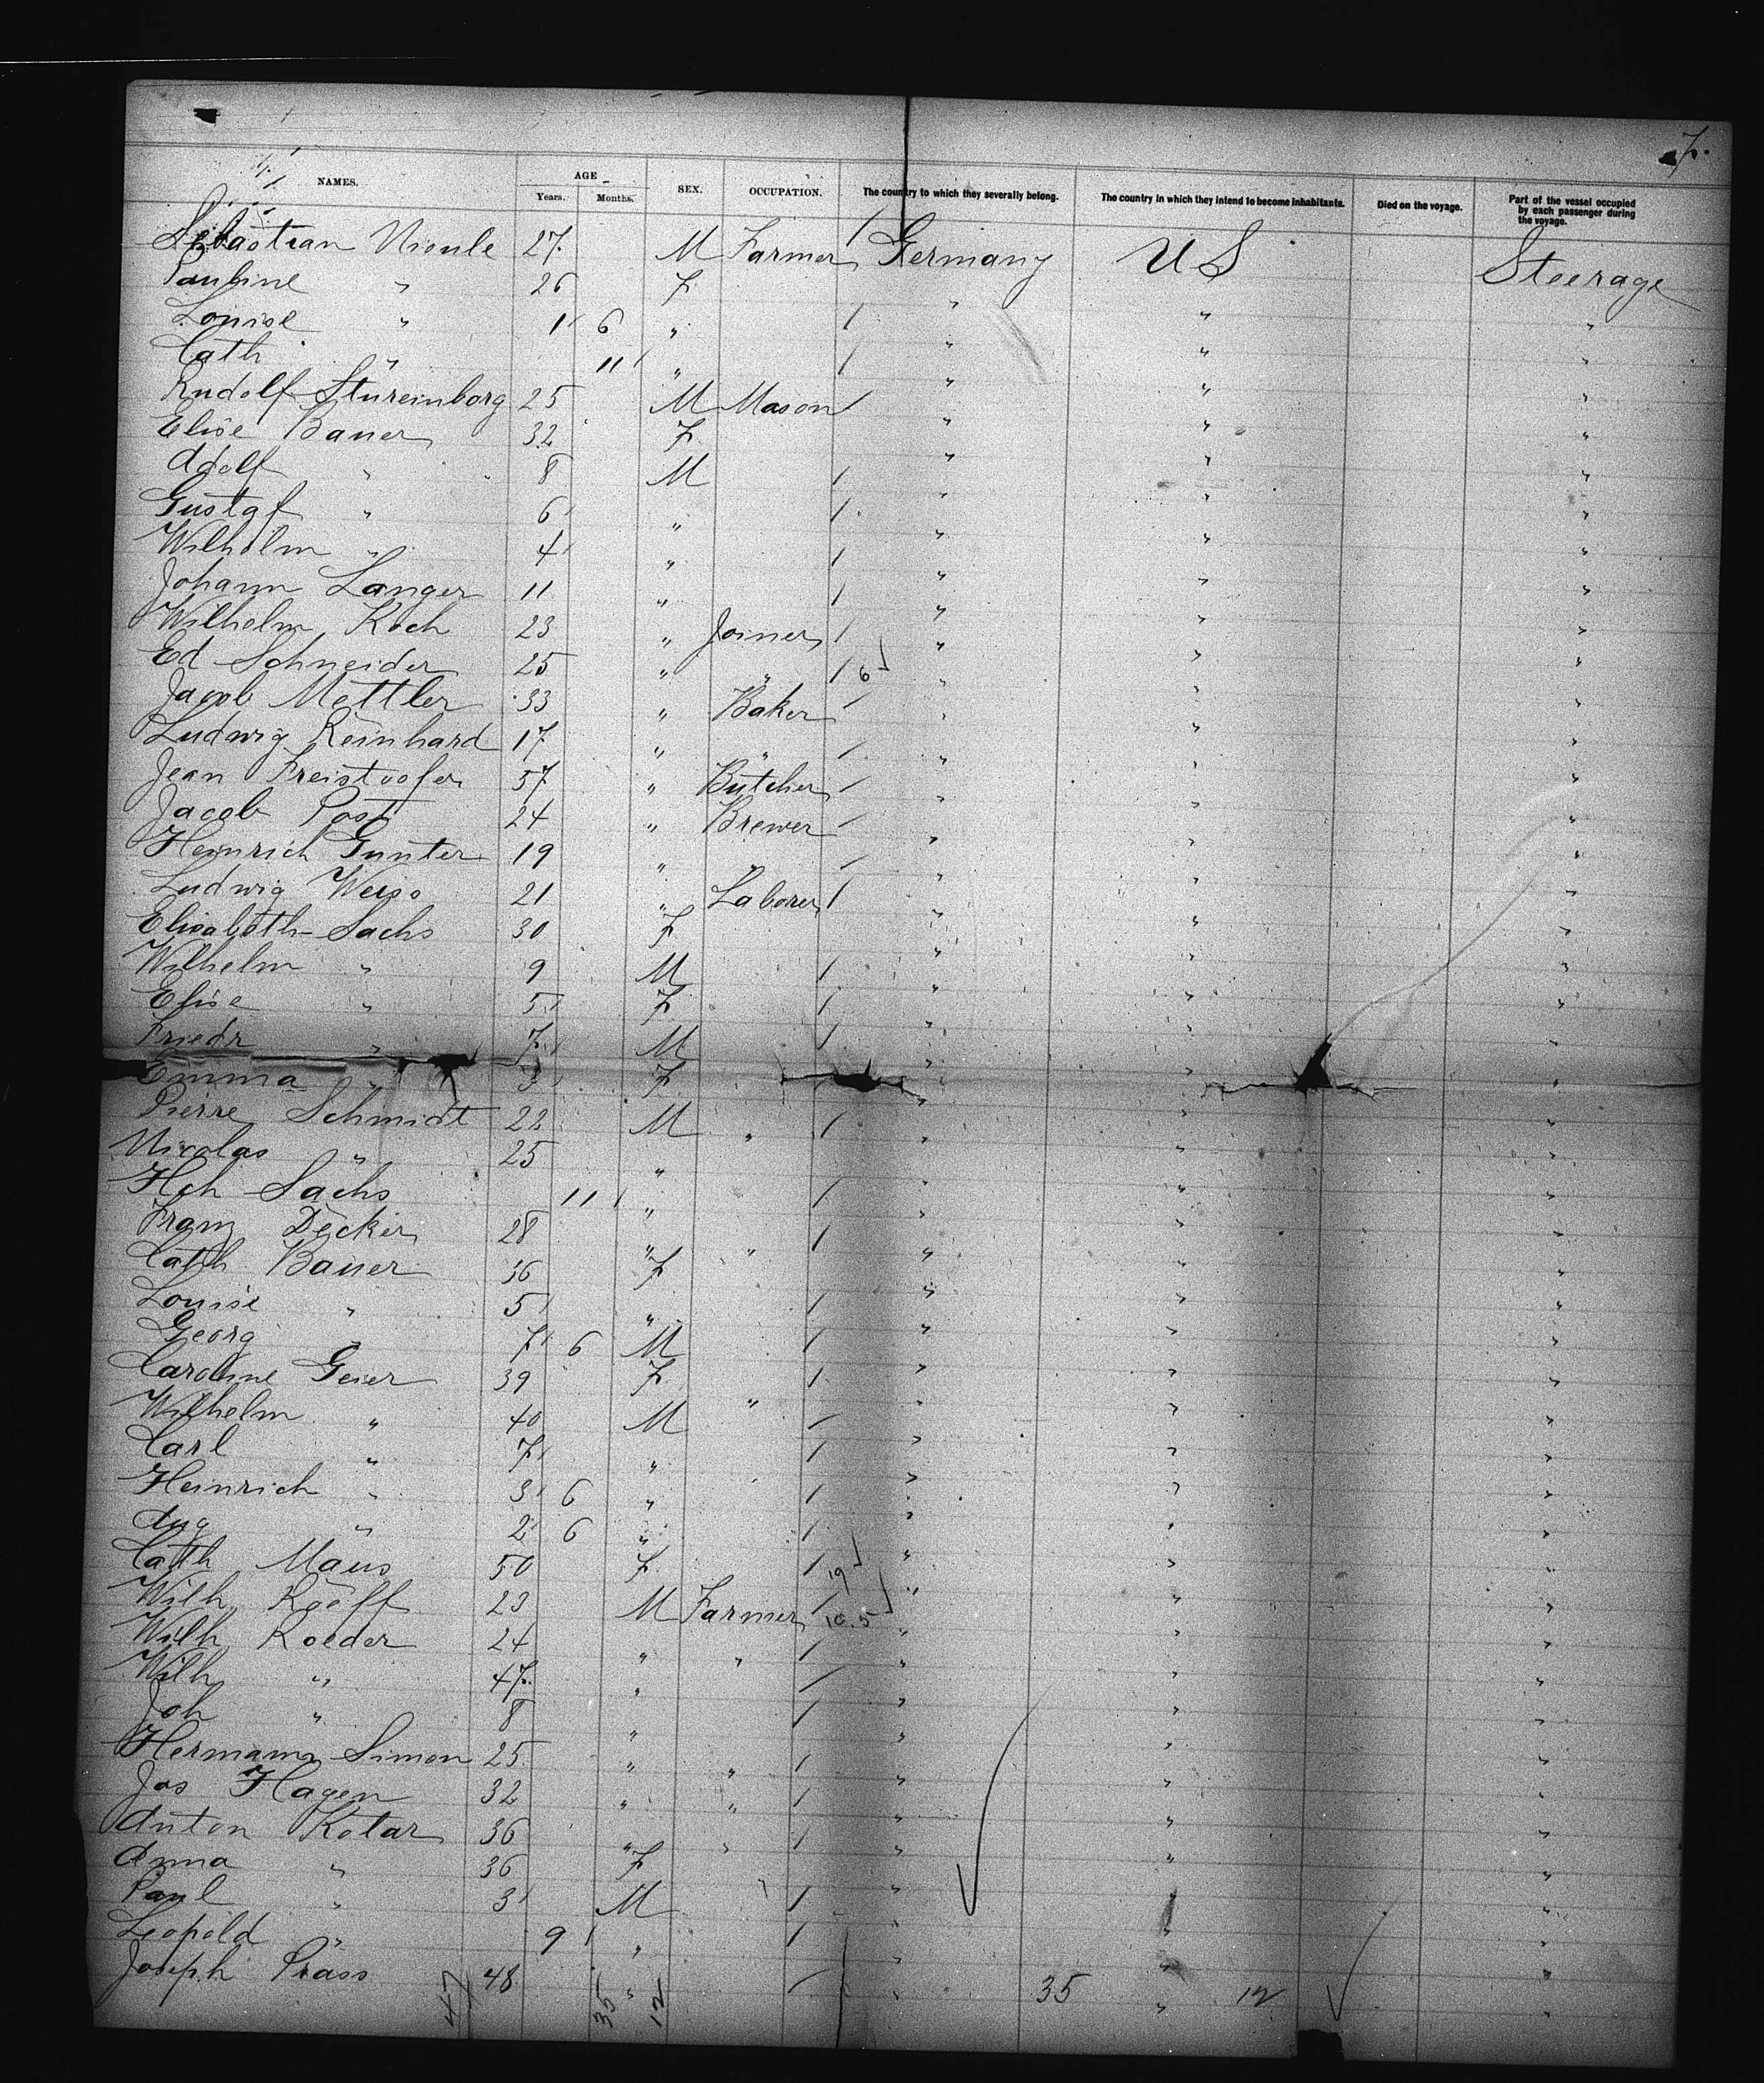 7.
NAMES. AGE Years. Months. SEX. OCCUPATION. The country to which they severally belong. The country in which they intend to become inhabitants. Died on the voyage. Part of the vessel occupied by each passenger during the voyage.
Sebastian 27 M Farmer Germany U S Steerage
Pauline " 26 F " " "
Louise " 1 6 " " " "
Cath " 11 " " " "
Rudolf Stureinborg 25 M Mason " " "
Elise Bauer 32 F " " "
Adolf " 8 M " " "
Gustaf " 6 " " " "
Wilhelm " 4 " " " "
Johann Langer 11 " " " "
Wilhelm Koch 23 " Joiner " " "
Ed Schneider 25 " " 6 " " "
Jacob Mettler 33 " Baker " " "
Ludwig Reinhard 17 " " " " "
Jean 57 " Butcher " " "
Jacob Post 24 " Brewer " " "
Heinrich Gunter 19 " " " " "
Ludwig Weiss 21 " Laborer " " "
Elisabeth Sachs 30 F " " "
Wilhelm " 9 M " " "
Elise " 5 F " " "
Friedr " 7 M " " "
Emma " 3 F " " "
Pierre Schmidt 22 M " " " "
Nicolas " 25 " " " "
Hch Sachs 11 " " " "
Franz Decker 28 " " " " "
Cath Bauer 36 F " " "
Louise " 5 " " " "
Georg " 7 6 M " " "
Caroline Geier 39 F " " "
Wilhelm " 40 M " " " "
Carl " 7 " " " "
Heinrich " 3 6 " " " "
Aug " 2 6 " " " "
Cath Maus 50 F 19 " " "
Wilh 23 M Farmer 10.5 " " "
Wilh Roeder 24 " " " " "
Wilh " 47 " " " "
Joh " 8 " " " "
Hermann Simon 25 " " " " "
Jos Hagen 32 " " " " "
Anton Kotar 36 " " " " "
Anna " 36 F " " "
Paul " 3 M " " "
Leopold " 9 " " " "
Joseph Prass 48 " " " "
47 35 12 35 12